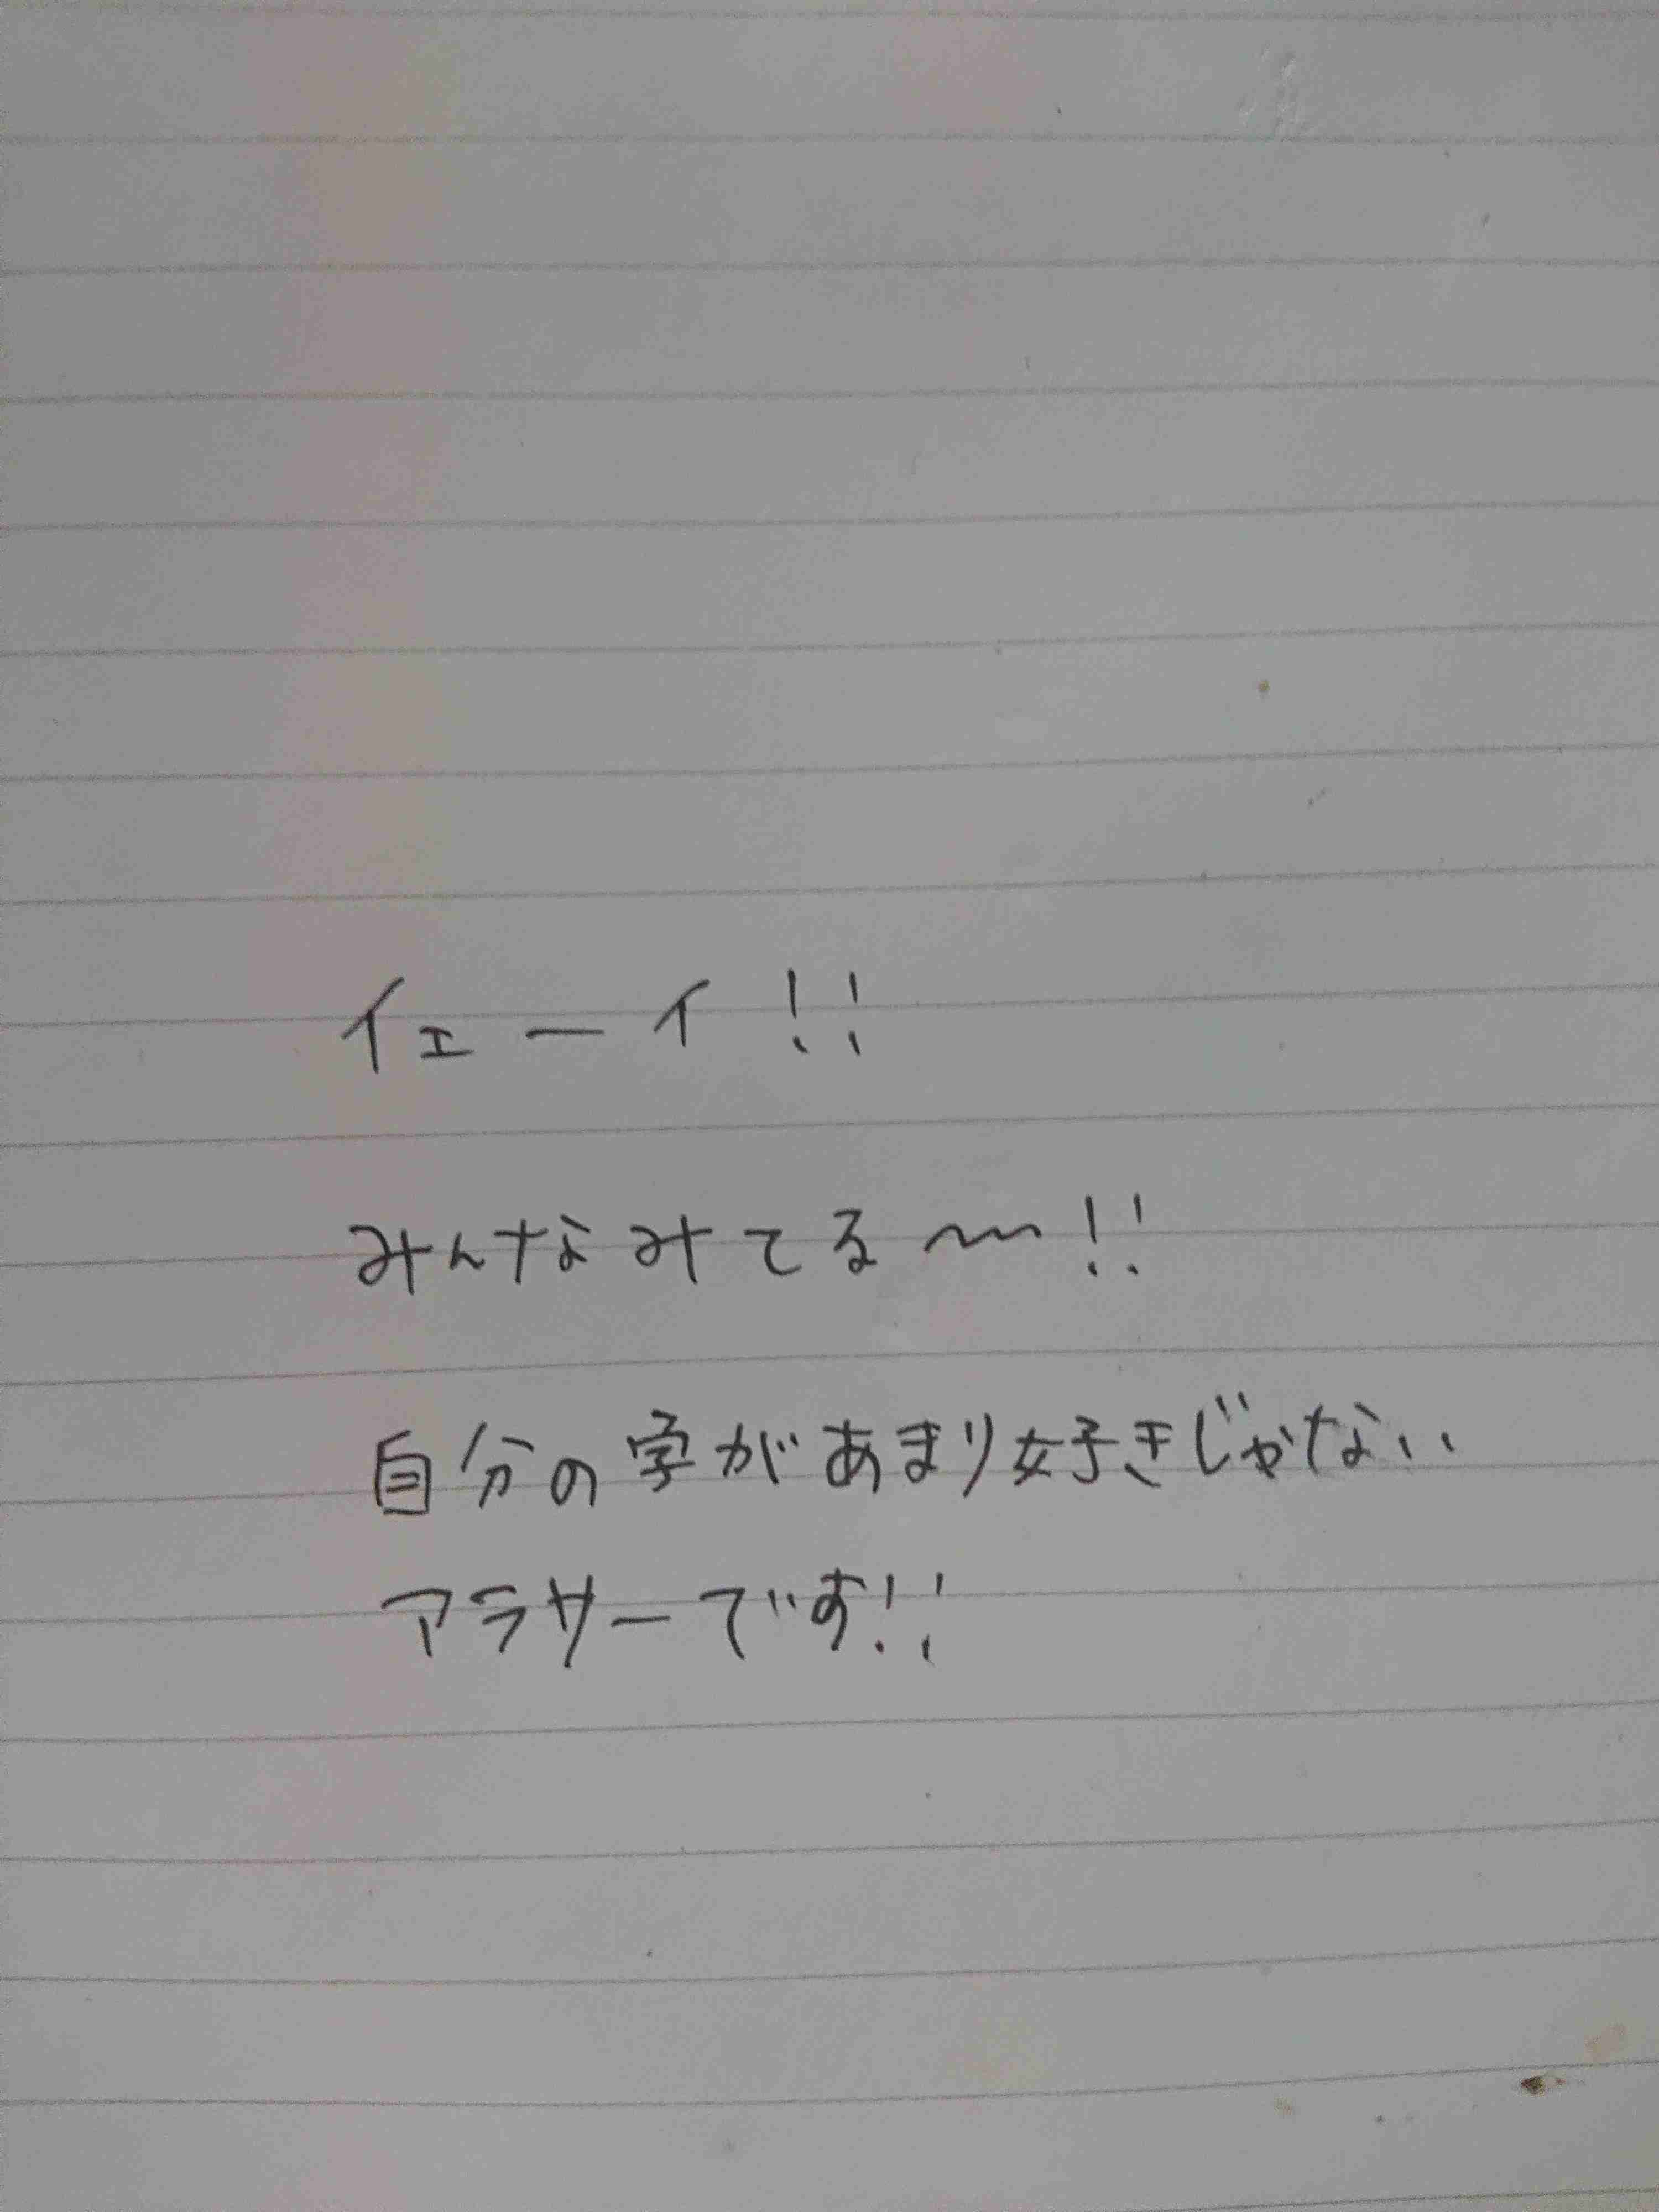 イェーイ!!
みんなみてる〜!!
自分の字があまり好きじゃない
アラサーです!!